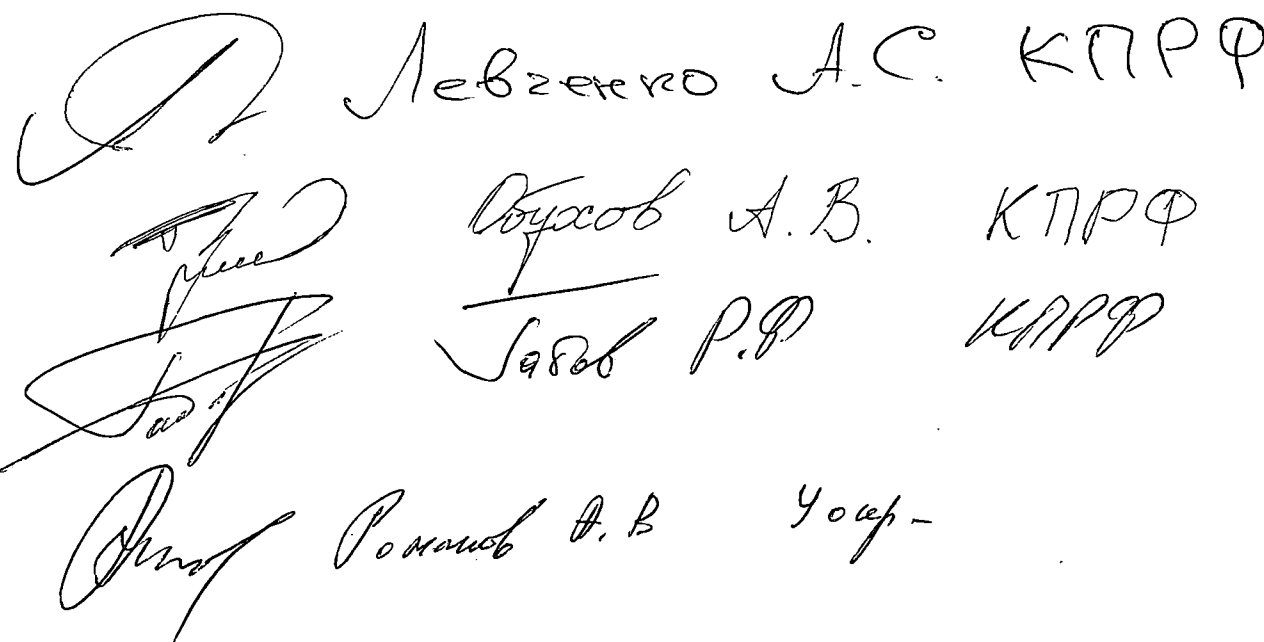 Левченко А.С. КПРФ
Обухов А.В. КПРФ
Габов Р.Ф КПРФ
Романов А.В